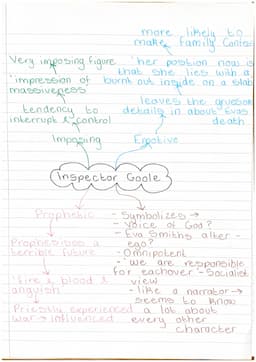 more likely to
make family confess
Very imposing figure
'her position now is
that she lies with a
burnt out inside on a slab
'impression of
massiveness'
tendency to
interrupt & control
leaves the gruesome
details in about Evas
death
Imposing
Emotive
Inspector Goole
Prophetic
Prophesises a
terrible future
'fire & blood &
anguish'
Priestly experienced a lot about
war → influenced
- Symbolizes →
- Voice of God?
- Eva Smiths alter-
ego?
- Omnipotent
- 'we are responsible
for eachover' - Socialist
view
- like a narrator →
seems to know
every other
character